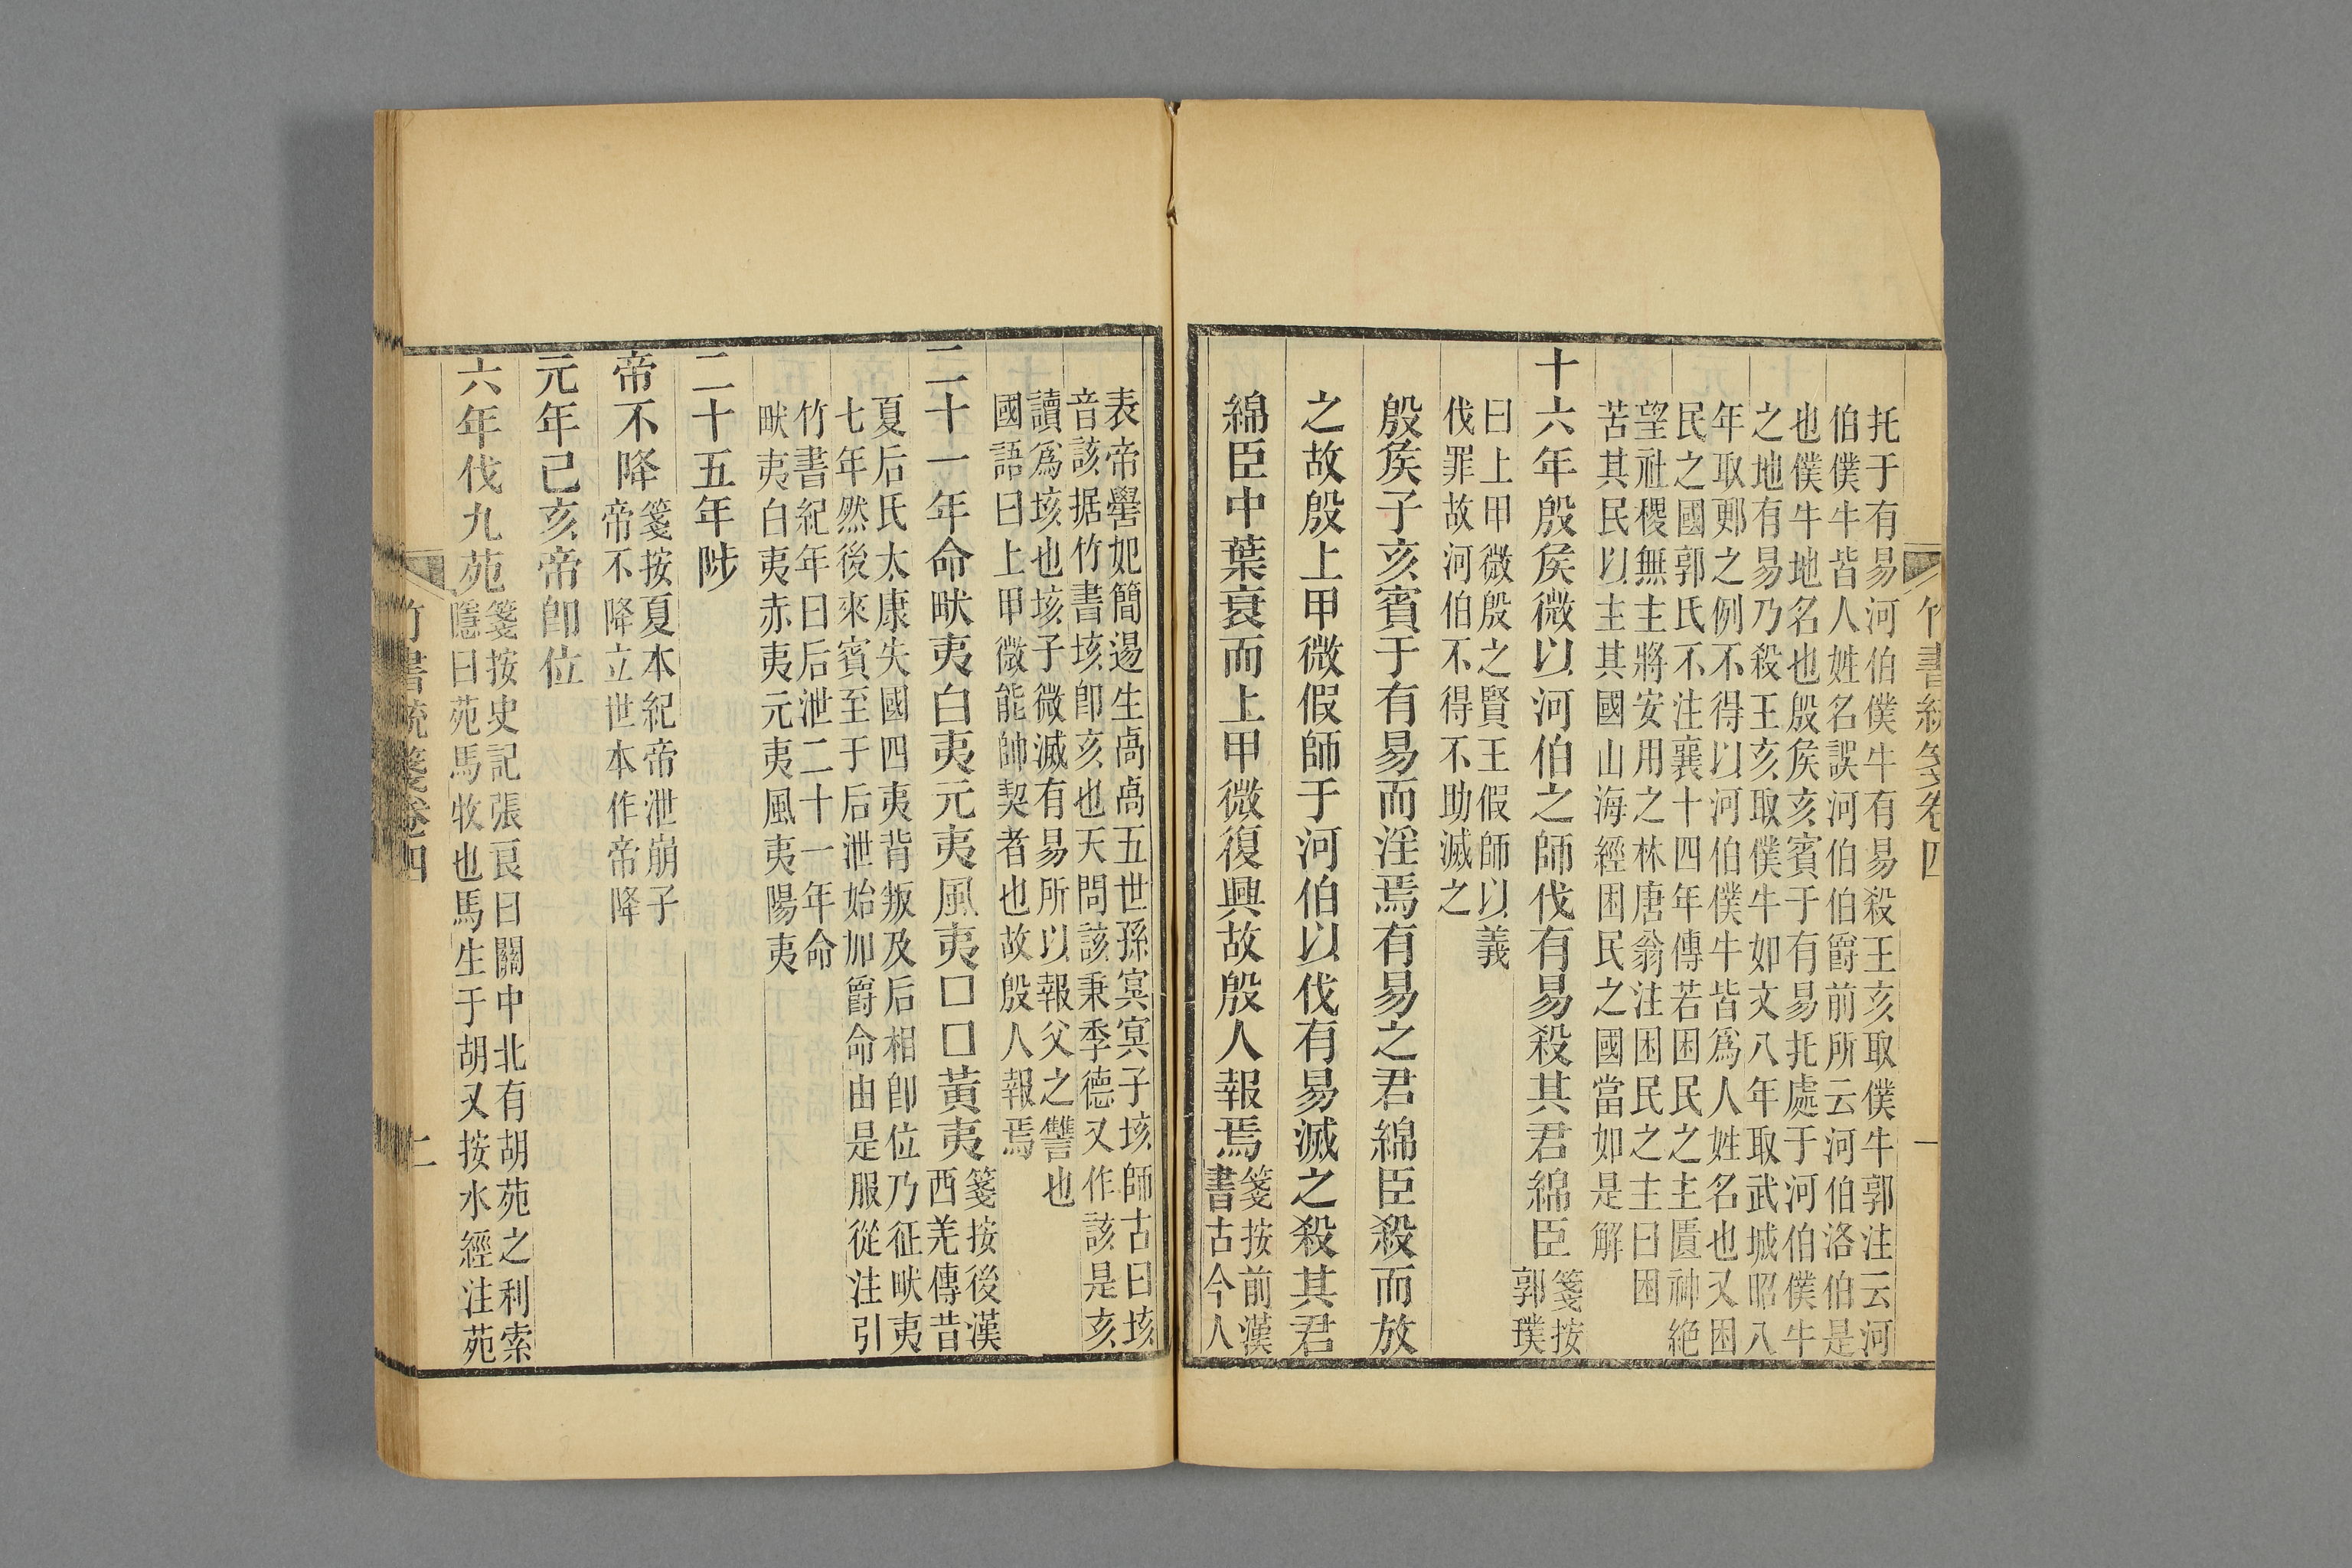 竹書統箋卷四
托于有易河伯僕牛有易殺王亥取僕牛郭注云河
伯僕牛皆人姓名誤河伯伯爵前所云河伯洛伯是
也僕牛地名也殷矦亥賓于有易托處于河伯僕牛
之地有易乃殺王亥取僕牛如文八年取武城昭八
年取郠之例不得以河伯僕牛皆爲人姓名也又困
民之國郭氏不注襄十四年傳若困民之主匱神絶
望社稷無主將安用之林唐翁注困民之主曰困
苦其民以主其國山海經困民之國當如是解
十六年殷矦微以河伯之師伐有易殺其君綿臣
箋按
郭璞
曰上甲微殷之賢王假師以義
伐罪故河伯不得不助滅之
殷矦子亥賓于有易而淫焉有易之君綿臣殺而放
之故殷上甲微假師于河伯以伐有易滅之殺其君
綿臣中葉衰而上甲微復興故殷人報焉
箋按前漢
書古今人
表帝嚳妃簡逷生卨卨五世孫冥冥子垓師古曰垓
音該据竹書垓卽亥也天問該秉季德又作該是亥
讀爲垓也垓子微滅有易所以報父之讐也
國語曰上甲微能帥契者也故殷人報焉
二十一年命畎夷白夷元夷風夷□□黃夷
箋按後漢
西羌傳昔
夏后氏太康失國四夷背叛及后相卽位乃征畎夷
七年然後來賓至于后泄始加爵命由是服從注引
竹書紀年曰后泄二十一年命
畎夷白夷赤夷元夷風夷陽夷
二十五年陟
帝不降
箋按夏本紀帝泄崩子
帝不降立世本作帝降
元年己亥帝卽位
六年伐九苑
箋按史記張良曰關中北有胡苑之利索
隱曰苑馬牧也馬生于胡又按水經注苑
竹書統箋卷四